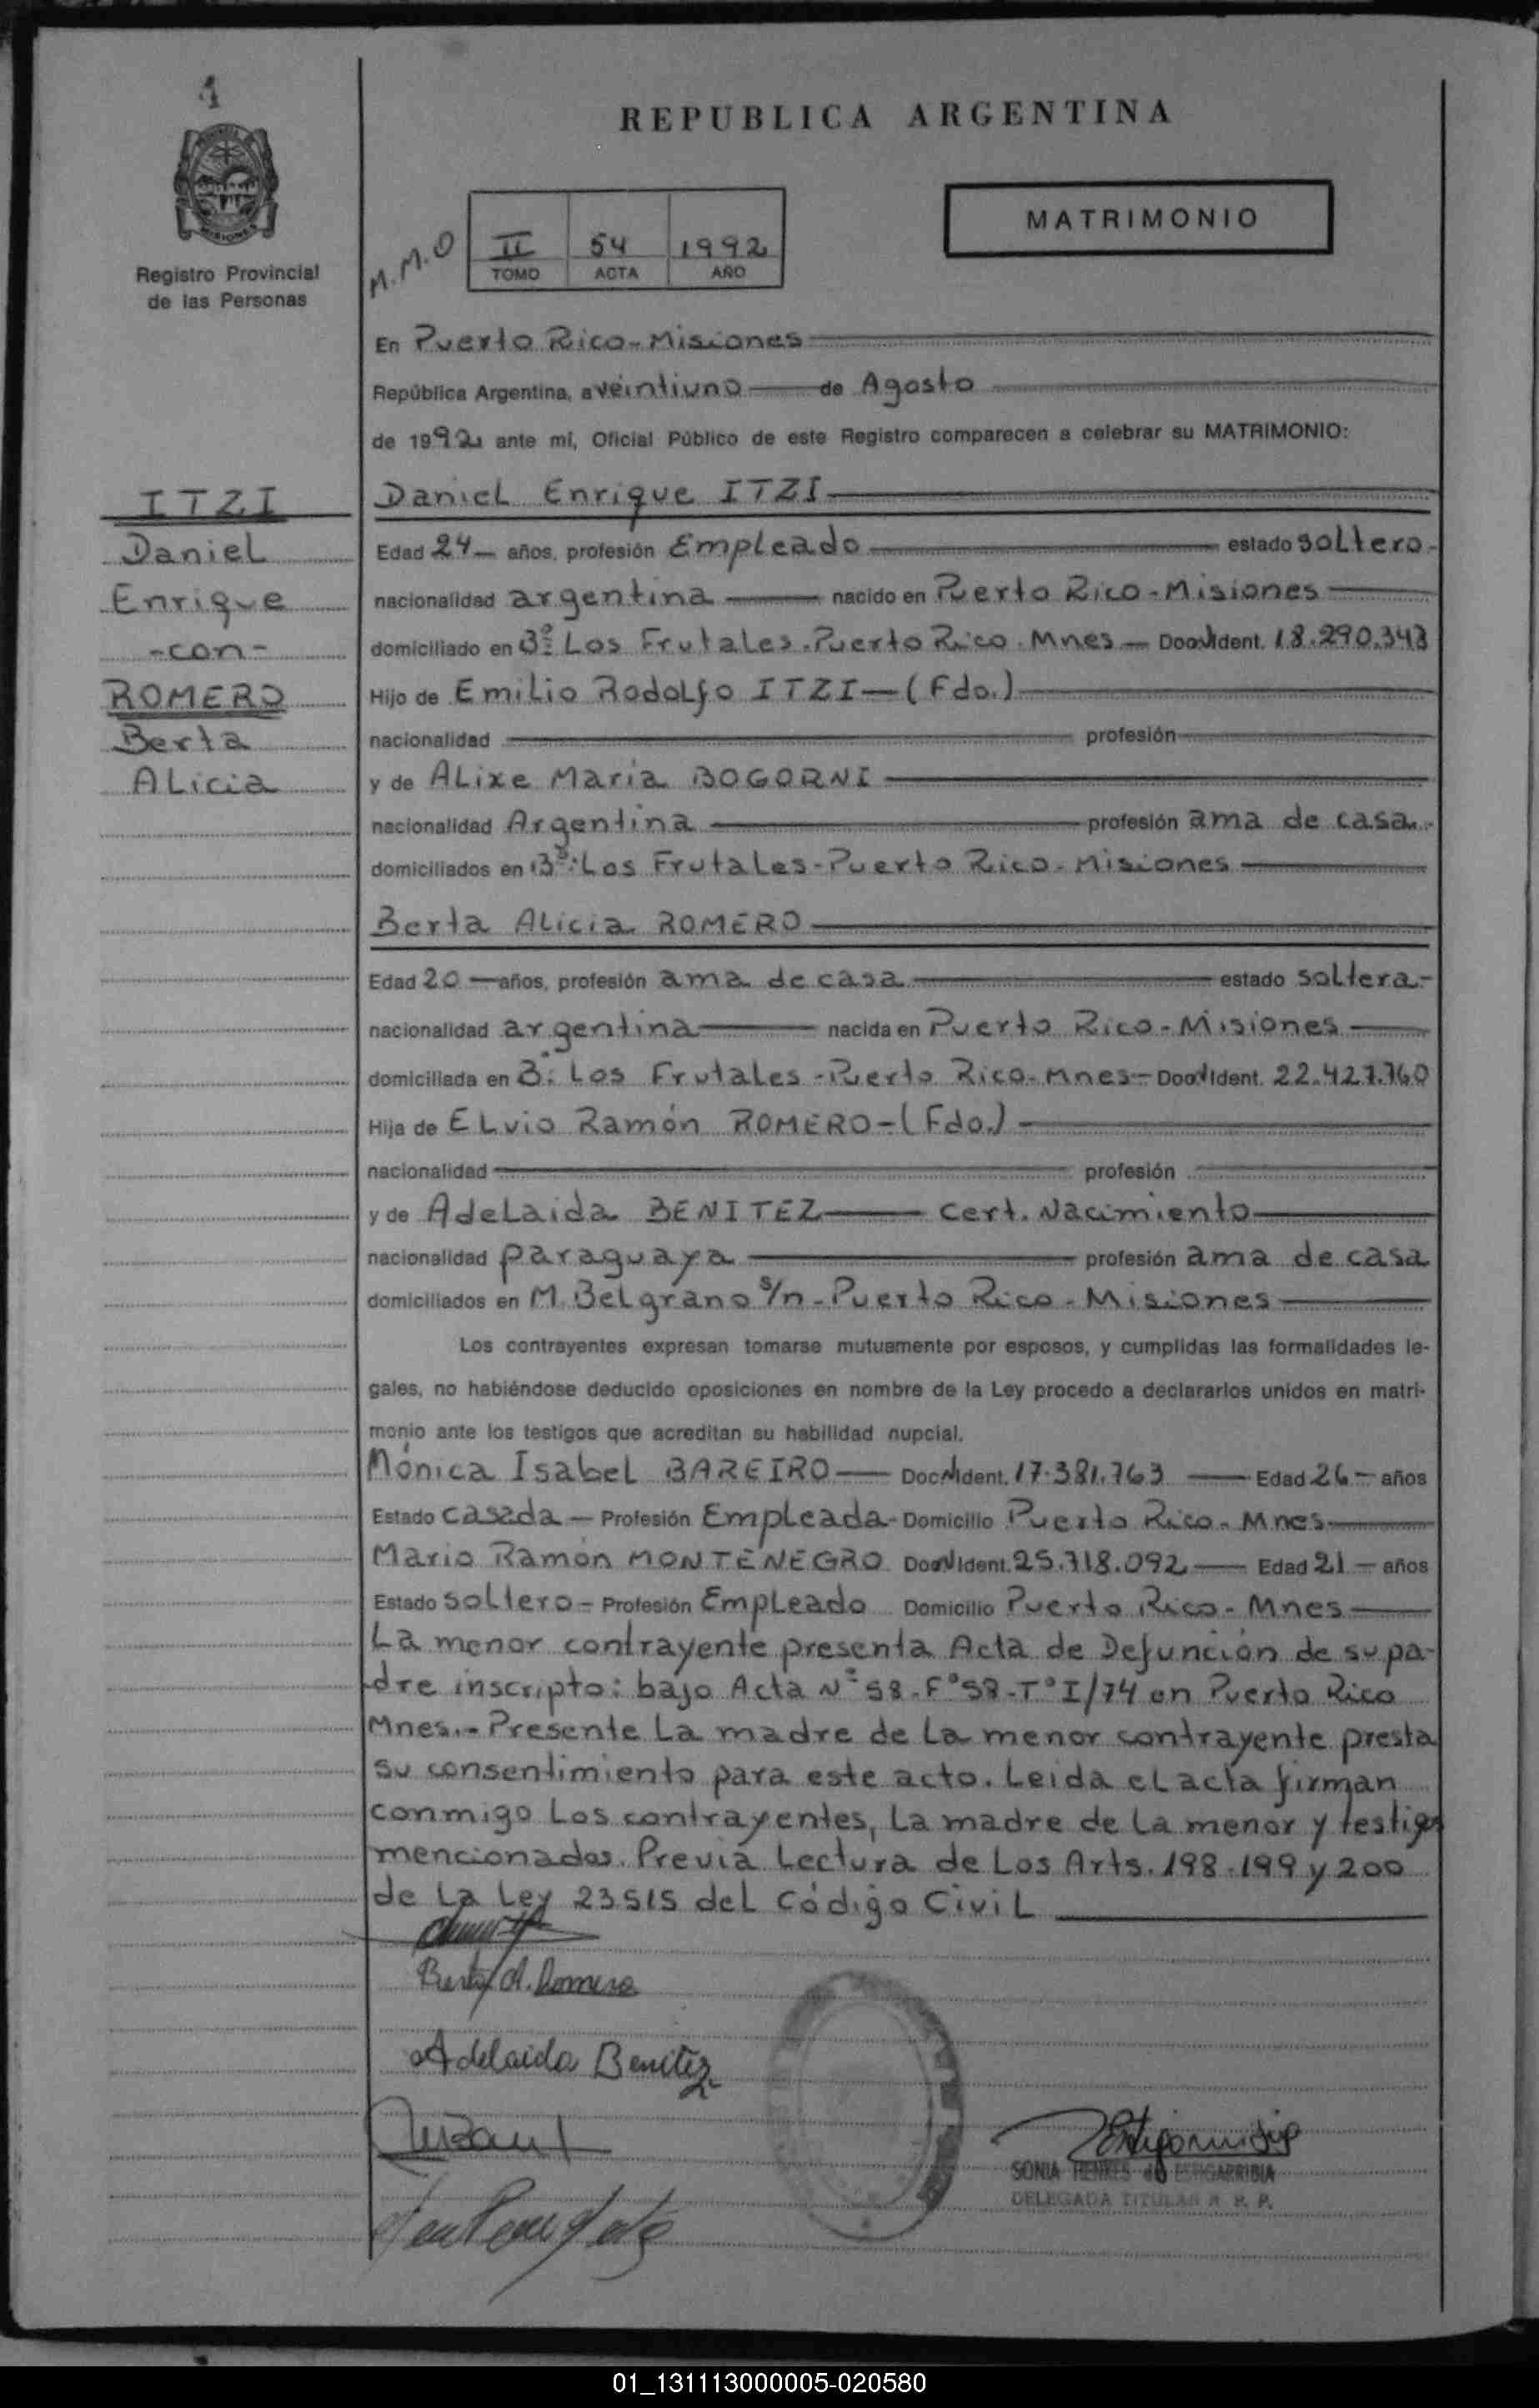 1
REPUBLICA ARGENTINA
MISIONES
Registro Provincial
de las Personas
M.M.O
II 54 1992
TOMO ACTA AÑO
MATRIMONIO
En Puerto Rico-Misiones
República Argentina, a veintiuno de Agosto
de 1992 ante mí, Oficial Público de este Registro comparecen a celebrar su MATRIMONIO:
ITZI
Daniel
Enrique
-con-
ROMERO
Berta
Alicia
Daniel Enrique ITZI
Edad 24 años, profesión Empleado estado soltero
nacionalidad argentina nacido en Puerto Rico-Misiones
domiciliado en Bº Los Frutales-Puerto Rico-Mnes Doc. Ident. 18.290.343
Hijo de Emilio Rodolfo ITZI (Fdo.)
nacionalidad profesión
y de Alixe Maria BOGORNI
nacionalidad Argentina profesión ama de casa
domiciliados en Bº: Los Frutales-Puerto Rico-Misiones
Berta Alicia ROMERO
Edad 20 años, profesión ama de casa estado soltera
nacionalidad argentina nacida en Puerto Rico-Misiones
domiciliada en Bº: Los Frutales-Puerto Rico-Mnes Doc. Ident. 22.427.760
Hija de Elvio Ramón ROMERO-(Fdo.)
nacionalidad profesión
y de Adelaida BENITEZ Cert. Nacimiento
nacionalidad paraguaya profesión ama de casa
domiciliados en M. Belgrano s/n-Puerto Rico-Misiones
Los contrayentes expresan tomarse mutuamente por esposos, y cumplidas las formalidades le-
gales, no habiéndose deducido oposiciones en nombre de la Ley procedo a declararlos unidos en matri-
monio ante los testigos que acreditan su habilidad nupcial.
Mónica Isabel BAREIRO Doc. Ident. 17.381.763 Edad 26 años
Estado casada Profesión Empleada Domicilio Puerto Rico-Mnes
Mario Ramón MONTENEGRO Doc. Ident. 25.718.092 Edad 21 años
Estado soltero Profesión Empleado Domicilio Puerto Rico-Mnes
La menor contrayente presenta Acta de Defunción de su pa-
dre inscripto: bajo Acta Nº 58-Fº58-TºI/74 en Puerto Rico
Mnes.- Presente la madre de la menor contrayente presta
su consentimiento para este acto. Leida el acta firman
conmigo los contrayentes, la madre de la menor y testigos
mencionados. Previa lectura de los Arts. 198-199 y 200
de la Ley 23515 del Código Civil
Berta A. Romero
Adelaida Benitez
SONIA HENKES de ESTIGARRIBIA
DELEGADA TITULAR R. P. P.
01_131113000005-020580